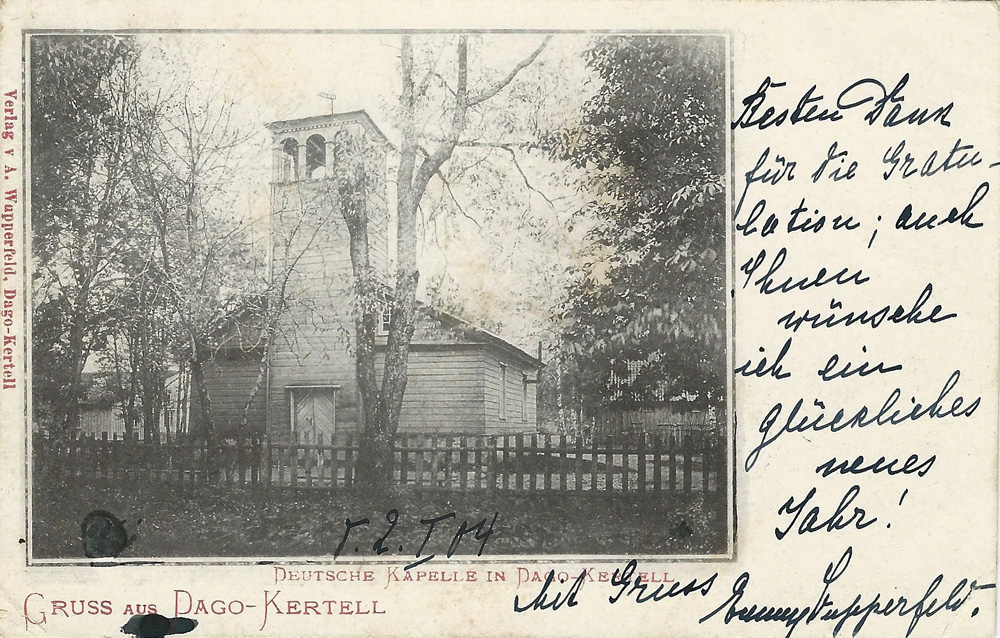 Verlag v A. Wupperfeld, Dago-Kertell
Besten Dank
für die Gratu-
lation; auch
Ihnen
wünsche
ich ein
glückliches
neues
Jahr!
d. 2. I 04
DEUTSCHE KAPELLE IN DAGO-KERTELL
GRUSS AUS DAGO-KERTELL
Mit Gruss
Emmy Wupperfeld.